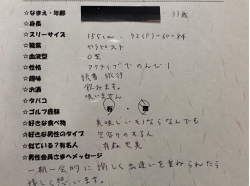 ☆なまえ・年齢 33歳
☆身長
☆スリーサイズ 155cm 92(F)-60-84
☆職業 セラピスト
☆血液型 O型
☆性格 アクティブでのんびり
☆趣味 読書 旅行
☆お酒 飲めます。
☆タバコ 吸いません
☆ゴルフ経験 有・無
☆好きな食べ物 美味しいモノならなんでも
☆好きな男性のタイプ
☆似ている?有名人
☆男性会員さまへメッセージ
一期一会的に 愉しく出逢いを重ねられたら
嬉しく思います。